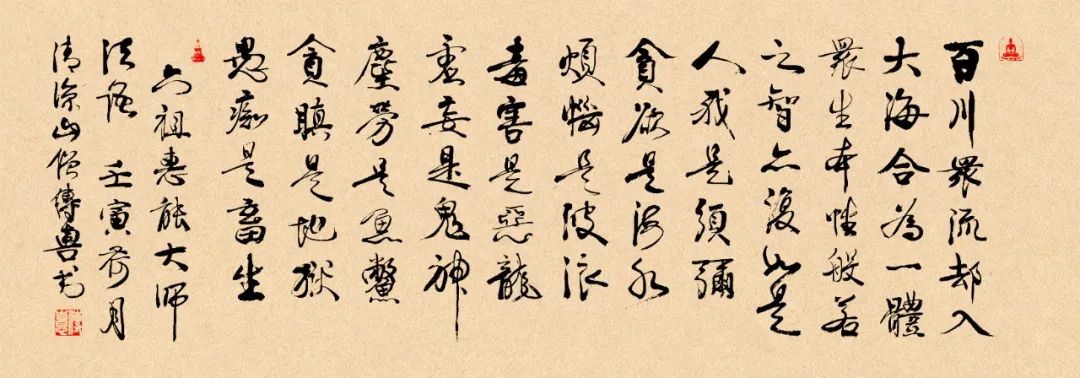 百川眾流却入
大海合為一體
眾生本性般若
之智亦復如是
人我是須彌
貪欲是海水
煩惱是波浪
毒害是惡龍
虛妄是鬼神
塵勞是魚鱉
貪瞋是地獄
愚癡是畜生
六祖惠能大师
法語 壬寅荷月
清涼山僧傳興书